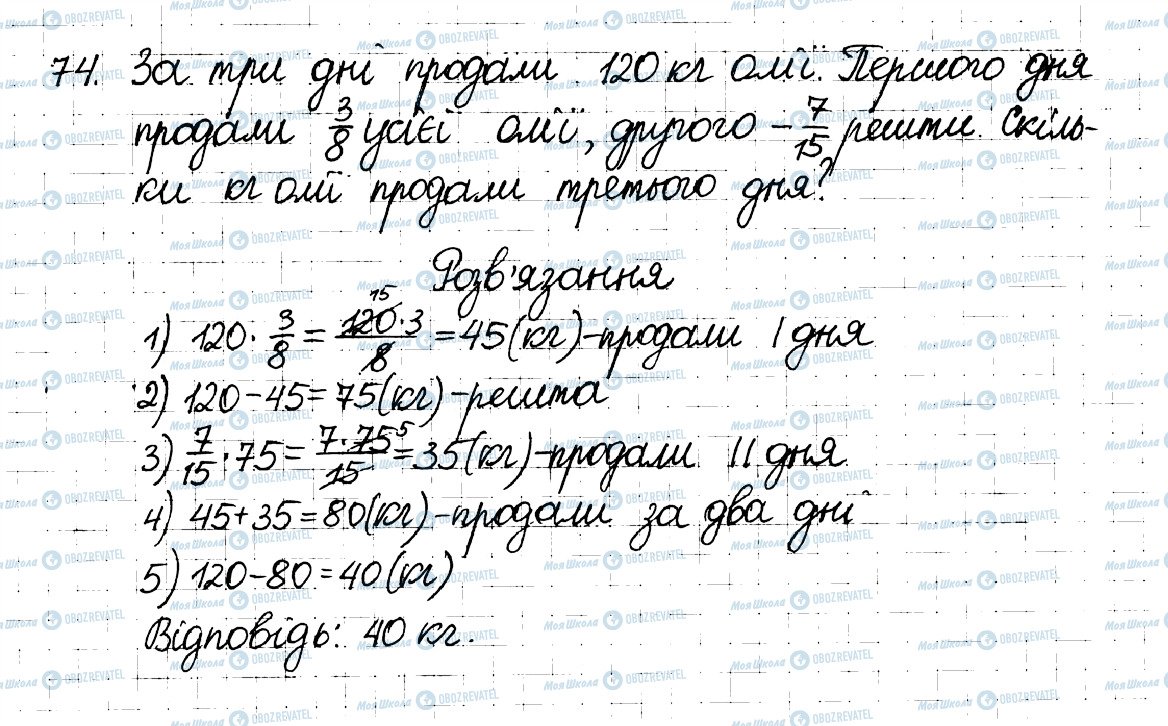 74. За три дні продали 120 кг олії. Першого дня
продали 3/8 усієї олії, другого – 7/15 решти. Скіль-
ки кг олії продали третього дня?
Розв'язання
1) 120 · 3/8 = 120·3/8 = 45 (кг) – продали I дня
2) 120 – 45 = 75 (кг) – решта
3) 7/15 · 75 = 7·75/15 = 35 (кг) – продали II дня
4) 45 + 35 = 80 (кг) – продали за два дні
5) 120 – 80 = 40 (кг)
Відповідь: 40 кг.